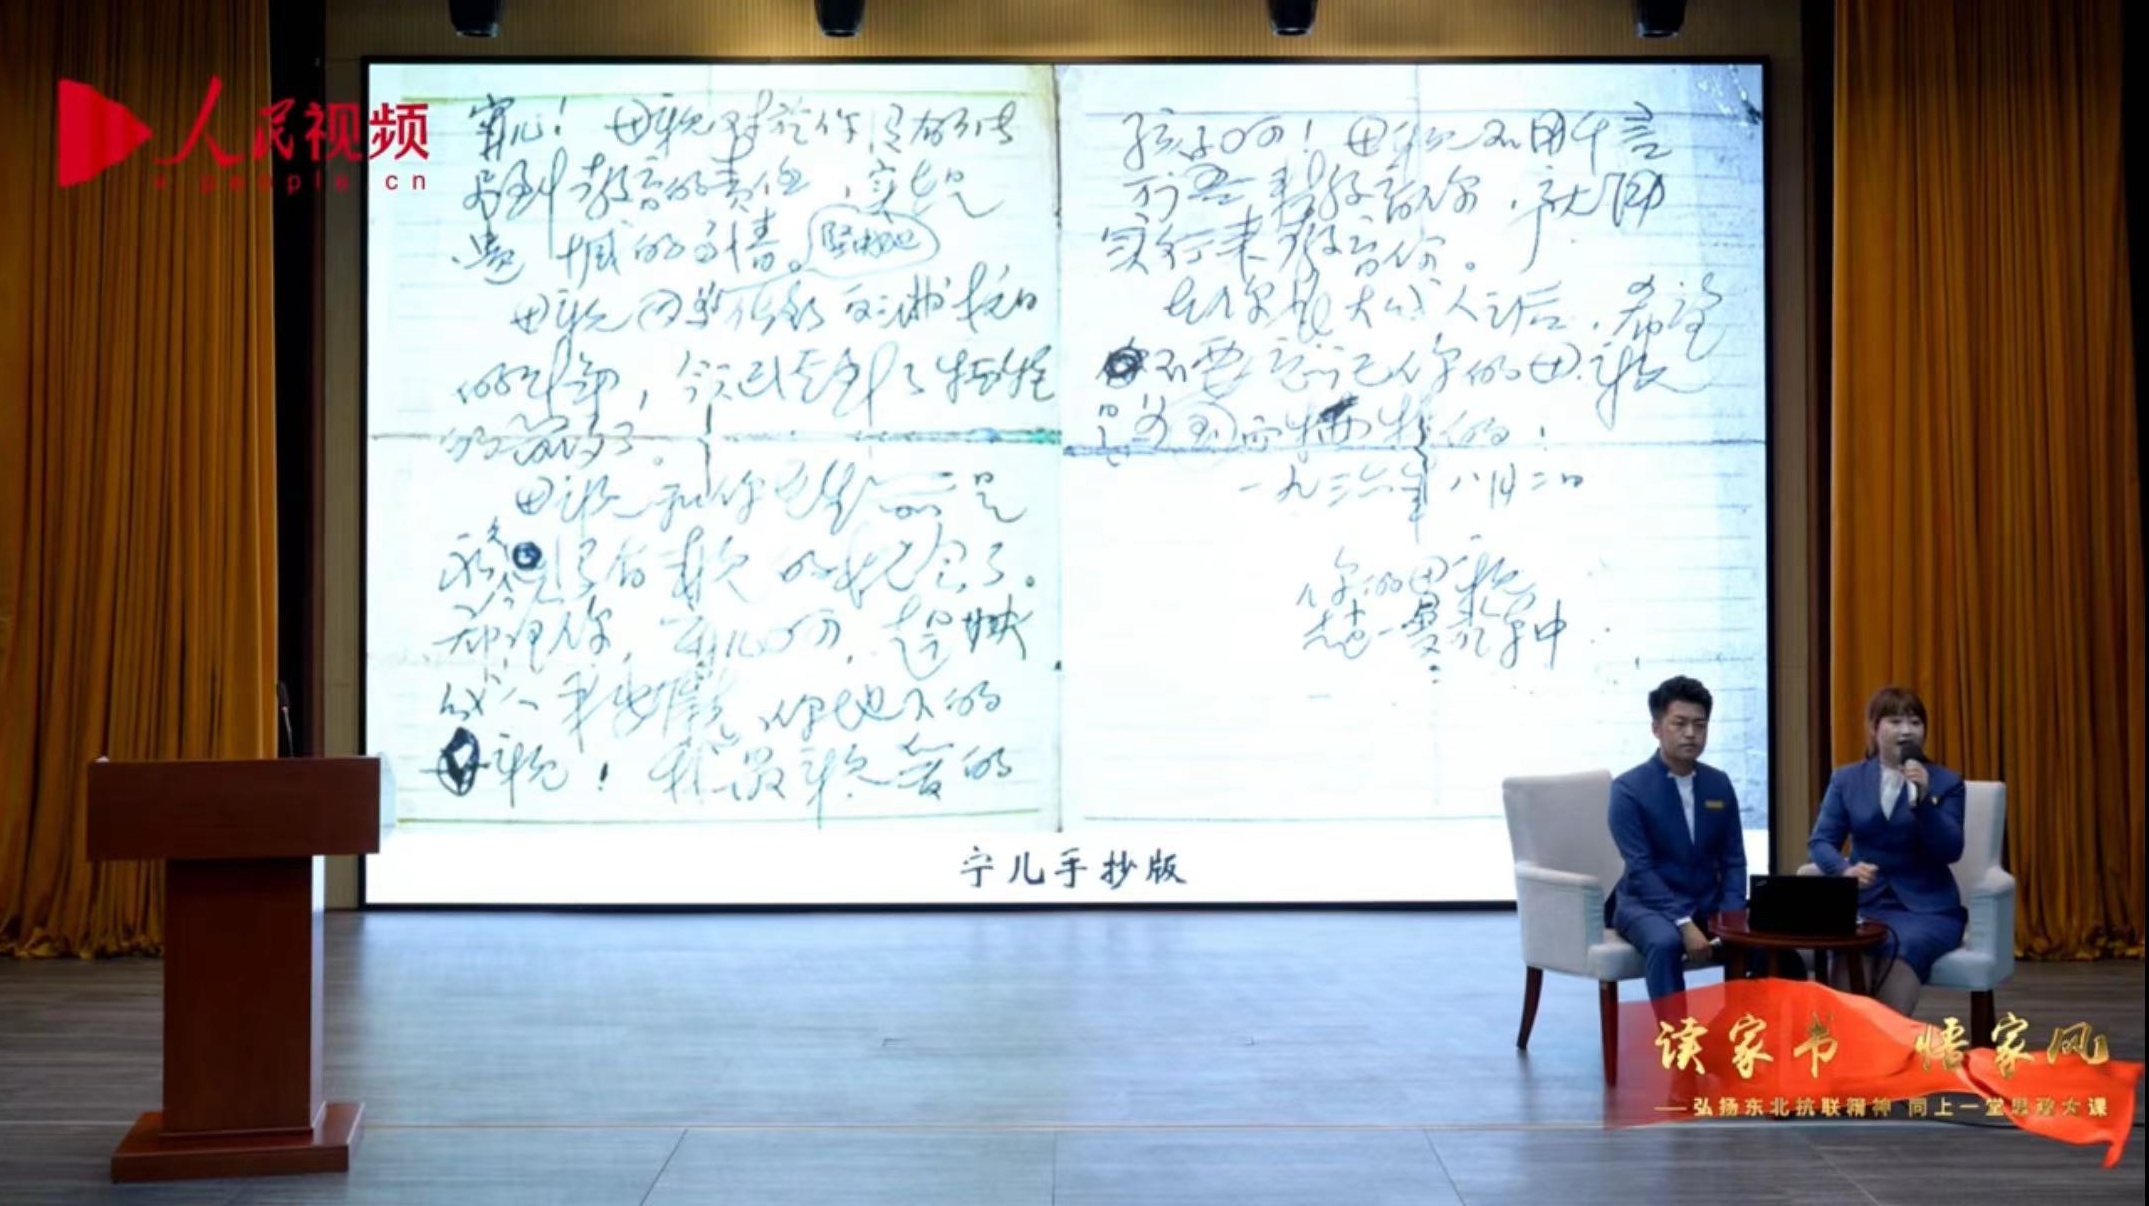 人民视频
people cn
宁儿！母亲对于你没有能尽
到教育的责任，实在是
遗憾的事情。
母亲因坚决的反满抗日
的斗争，今天已经到了牺牲
的前夕了。
母亲和你在生前是
永久没有见的机会了。
希望你，宁儿啊，赶快
成人来安慰你地下的
母亲！我最亲爱的
孩子啊！母亲不用千言
万语来教育你，就用
实行来教育你。
在你长大成人之后，希望
不要忘记你的母亲
是为国而牺牲的！
一九三六年八月二日
你的母亲
赵一曼于车中
宁儿手抄版
读家书 悟家风
——弘扬东北抗联精神 同上一堂思政大课